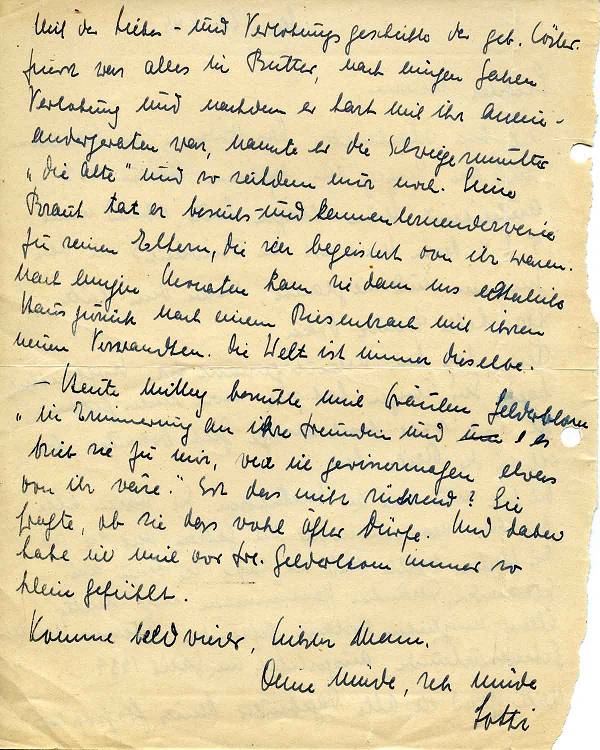 Mit der Liebes- und Verlobungsgeschichte der geb.
zuerst war alles in Butter, nach einigen Jahren
Verlobung und nachdem er hart mit ihr anein-
andergeraten war, nannte er die Schwiegermutter
„die Alte" und so seitdem nur noch. Seine
Braut tat er besuchs- und kennenlernenderweise
zu seinen Eltern, die sehr begeistert von ihr waren.
Nach einigen Monaten kam sie dann ins elterliche
Haus zurück nach einem Riesenkrach mit ihren
neuen Verwandten. Die Welt ist immer dieselbe.
– Heute Mittag besuchte mich Fräulein Gelderblom
„in Erinnerung an ihre Freundin und es
trieb sie zu mir, weil ich gewissermaßen etwas
von ihr wäre." Ist das nicht rührend? Sie
fragte, ob sie das wohl öfter dürfe. Und dabei
habe ich mich vor Frl. Gelderblom immer so
klein gefühlt.
Komme bald wieder, lieber Mann.
Deine müde, sehr müde
Lotti